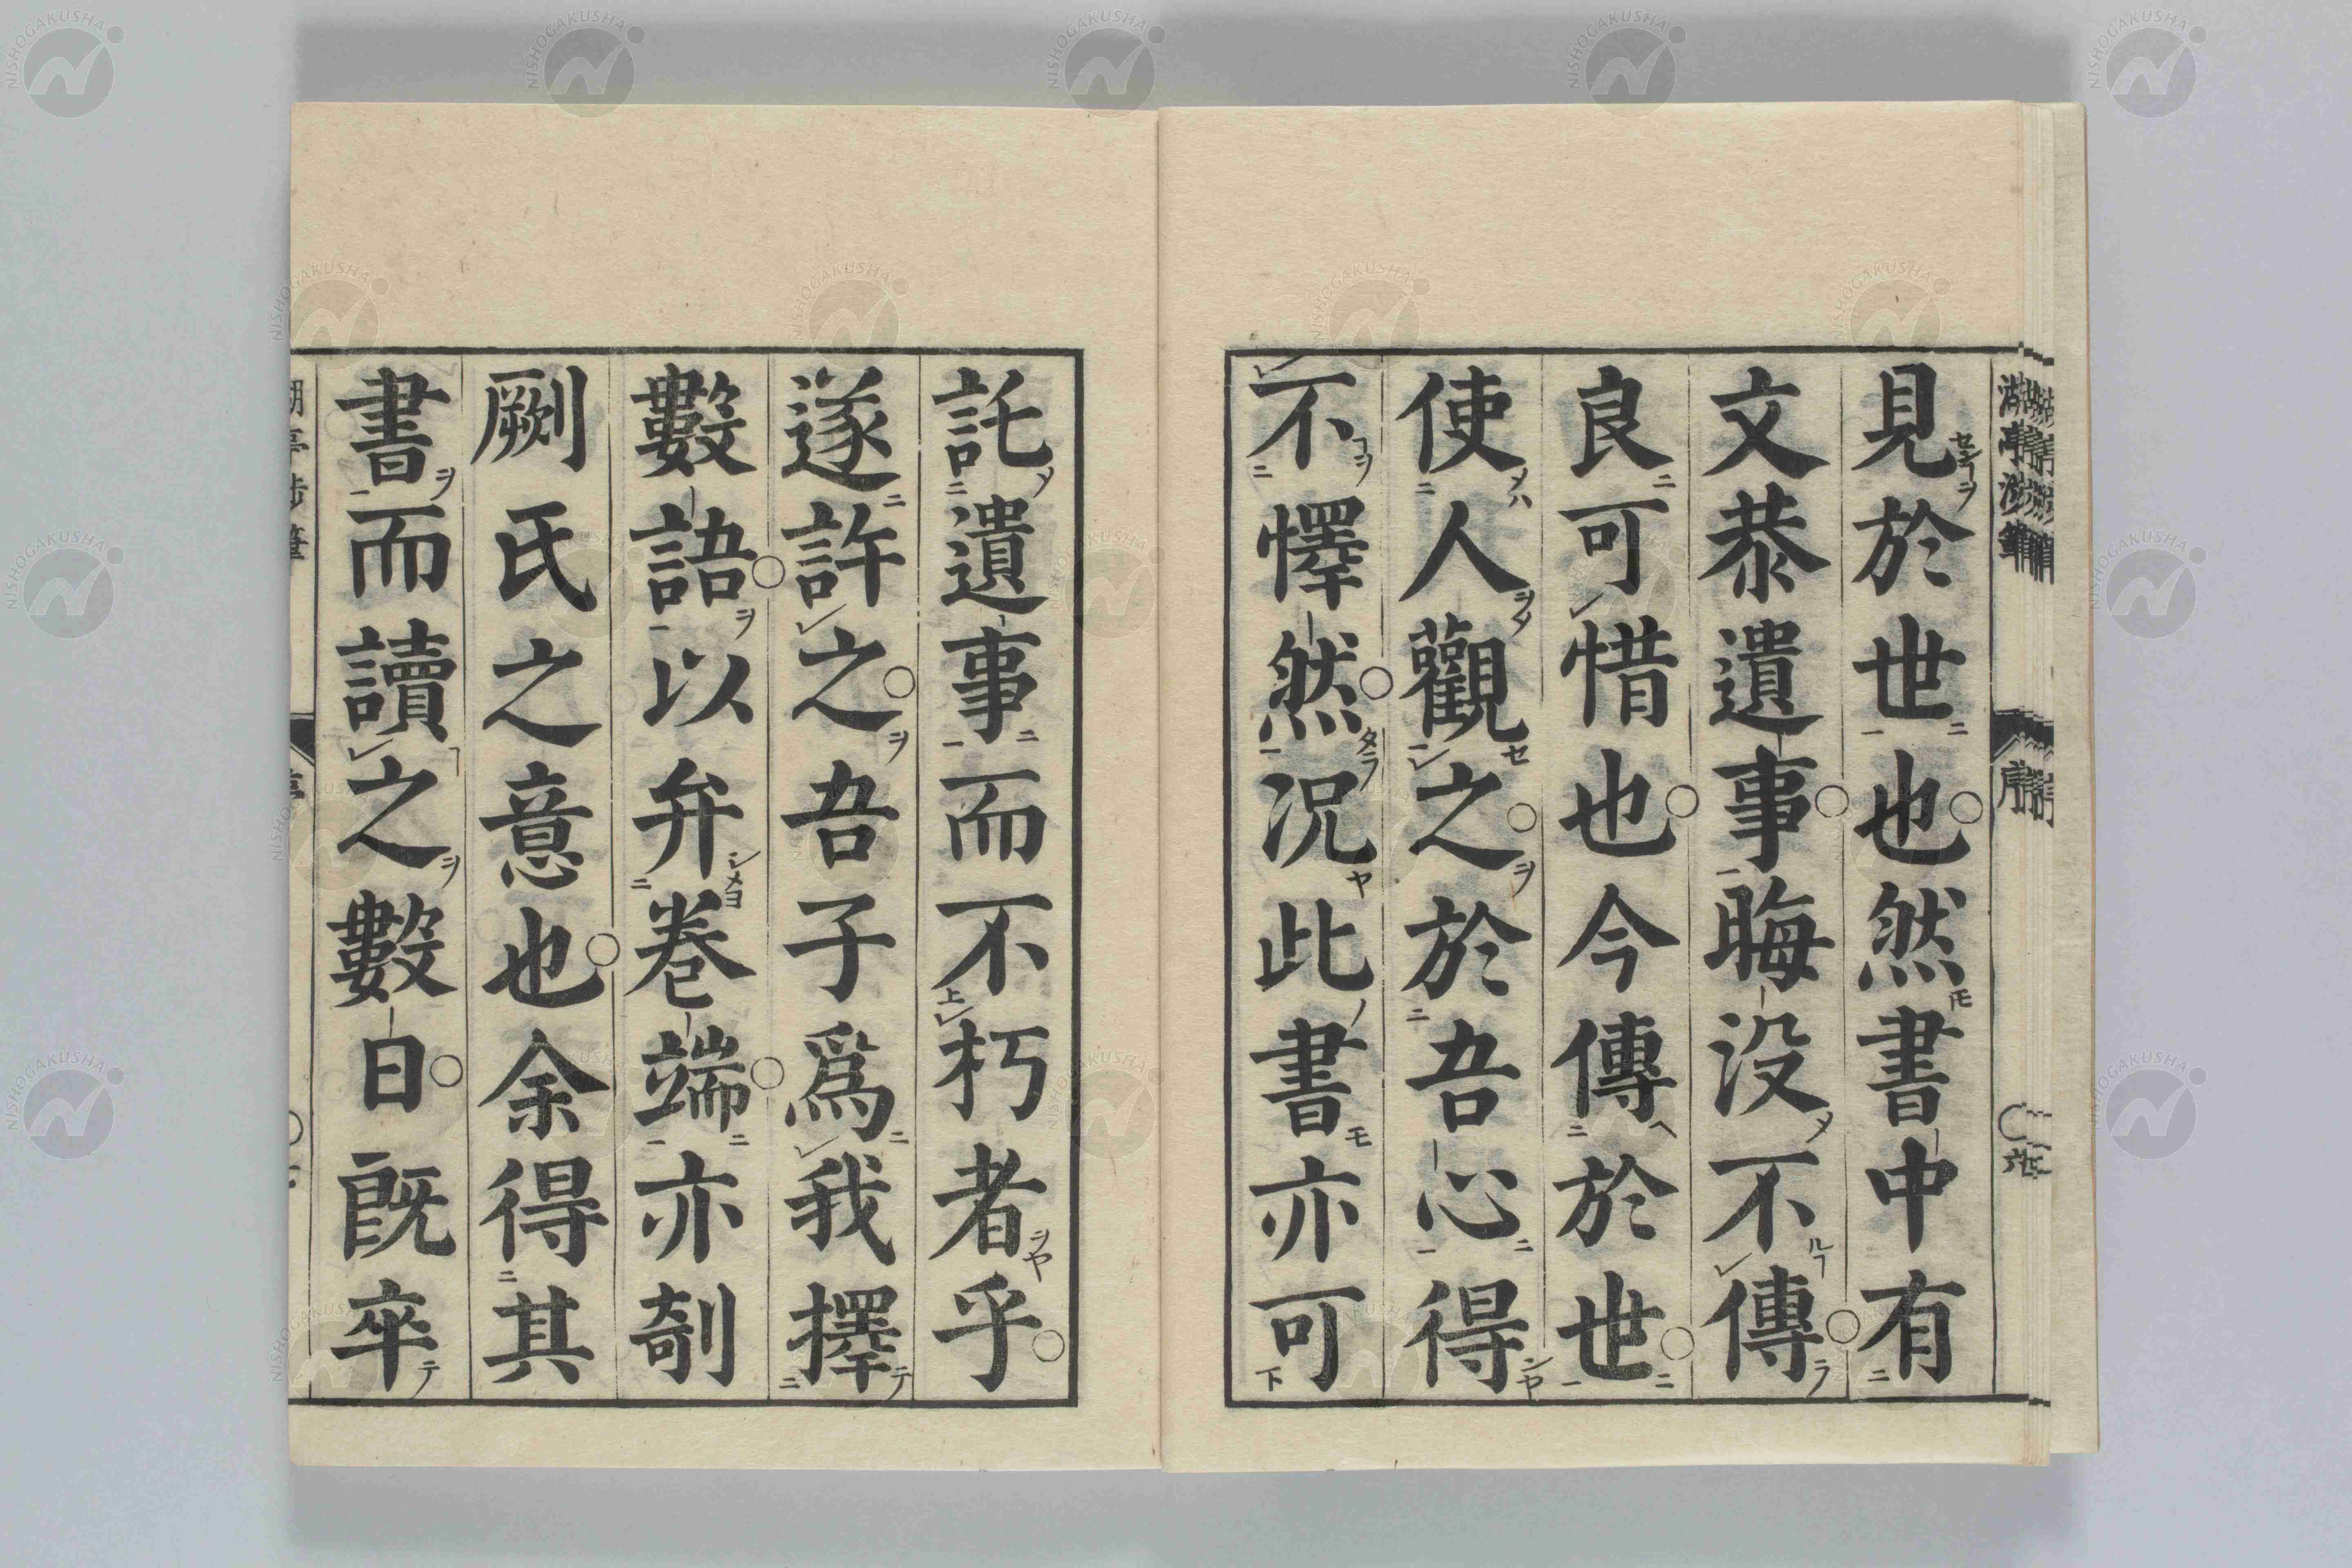 湖亭渉筆
序
見於世也然書中有
文恭遺事晦没不傳
良可惜也今傳於世
使人觀之於吾心得
不懌然况此書亦可
託遺事而不朽者乎
遂許之吾子爲我擇
數語以弁卷端亦剞
劂氏之意也余得其
書而讀之數日既卒
NISHOGAKUSHA